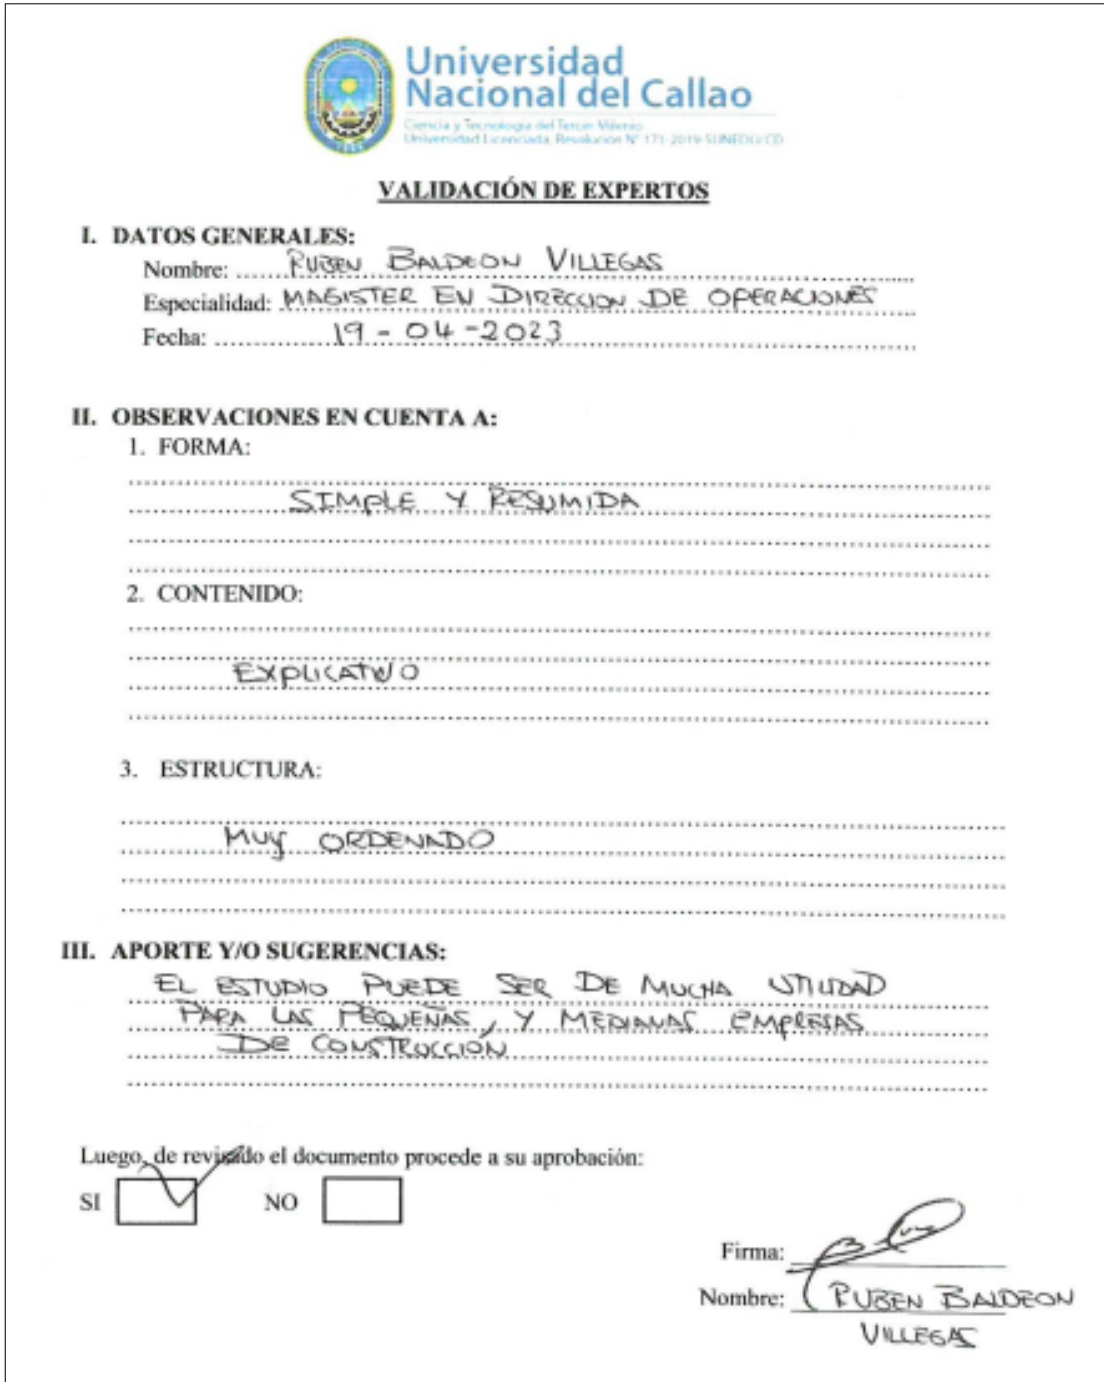 Universidad
Nacional del Callao
Ciencia y Tecnología del Tercer Milenio
Universidad Licenciada, Resolución N° 171-2019-SUNEDU/CD
VALIDACIÓN DE EXPERTOS
I. DATOS GENERALES:
Nombre: RUBEN BALDEON VILLEGAS
Especialidad: MAGISTER EN DIRECCION DE OPERACIONES
Fecha: 19-04-2023
II. OBSERVACIONES EN CUENTA A:
1. FORMA:
SIMPLE Y RESUMIDA
2. CONTENIDO:
EXPLICATIVO
3. ESTRUCTURA:
MUY ORDENADO
III. APORTE Y/O SUGERENCIAS:
EL ESTUDIO PUEDE SER DE MUCHA UTILIDAD
PARA LAS PEQUEÑAS, Y MEDIANAS EMPRESAS
DE CONSTRUCCIÓN
Luego, de revisado el documento procede a su aprobación:
SI NO
Firma:
Nombre: RUBEN BALDEON
VILLEGAS